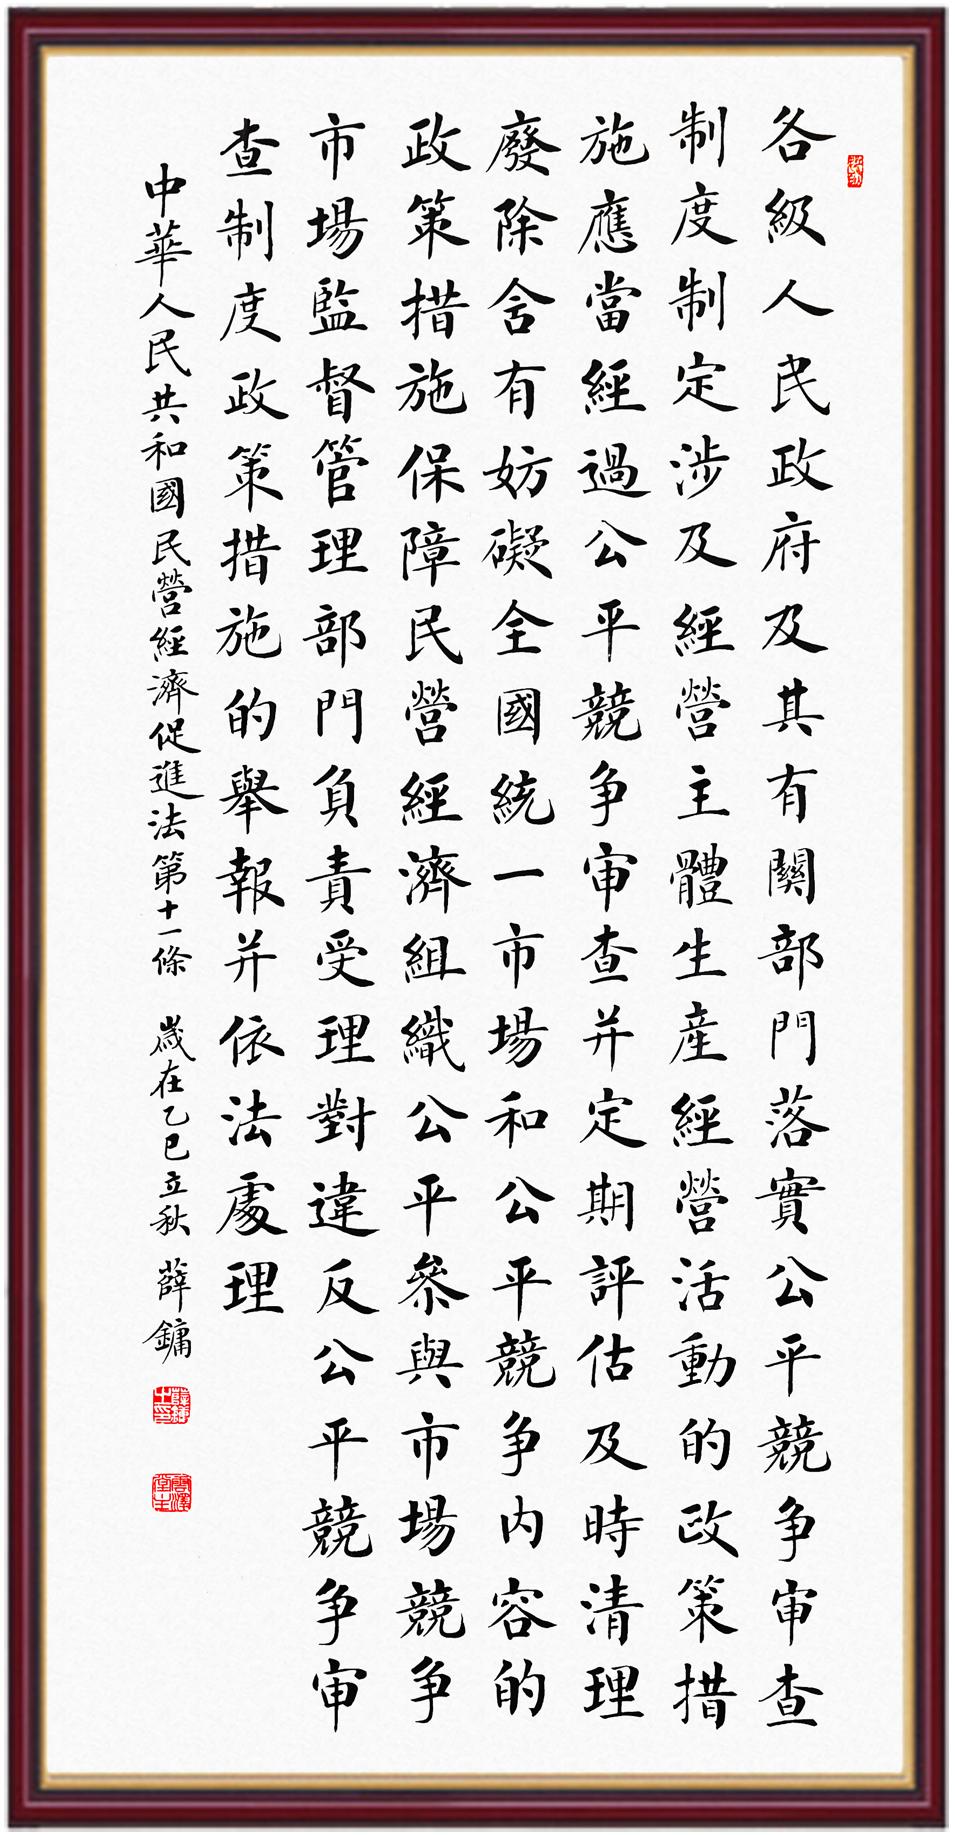 各級人民政府及其有關部門落實公平競争审查
制度制定涉及經營主體生産經營活動的政策措
施應當經過公平競争审查并定期評估及時清理
廢除含有妨礙全國統一市場和公平競争内容的
政策措施保障民營經濟組織公平參與市場競争
市場監督管理部門負責受理對違反公平競争审
查制度政策措施的舉報并依法處理
中華人民共和國民營經濟促進法第十一條 歲在乙巳立秋 薛鏞